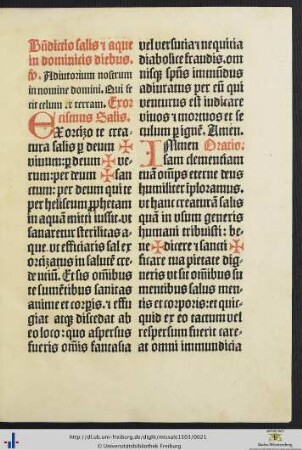 Bn̄dictio salis ⁊ aque
in dominicis diebus.
Adiutorium nostrum
in nomine domini. Qui fe
cit celum et terram. Exor
cismus Salis.
Exorcizo te crea
tura salis ꝑ deum ✠
viuum: ꝑ deum ✠ ve
rum: per deum ✠ san
ctum: per deum qui te
per heliseum ꝓphetam
in aquā mitti iussit. vt
sanaretur sterilitas a
que. vt efficiaris sal ex
orcizatus in salutē cre
dentiū. Et sis om̄ibus
te sumētibus sanitas
anime et corꝑis. ⁊ effu
giat atqꝫ discedat ab
eo loco: quo aspersus
fueris om̄is fantasia
vel versutia ⁊ nequitia
diabolice fraudis. om
nisqꝫ spūs immūdus
adiuratus per eū qui
venturus est iudicare
viuos ⁊ mortuos et se
culum ꝑ ignē. Amen.
Oratio:
Immen
sam clementiam
tuā om̄ps eterne deus
humiliter īploramus.
vt hanc creaturā salis
quā in vsum generis
humani tribuisti: be
ne✠dicere ⁊ sancti✠
ficare tua pietate dig
neris vt sit om̄ibus su
mentibus salus men
tis et corporis: et quic
quid ex eo tactum vel
respersum fuerit care
at omni immundicia
http://dl.ub.uni-freiburg.de/diglit/missale1501/0021
© Universitätsbibliothek Freiburg